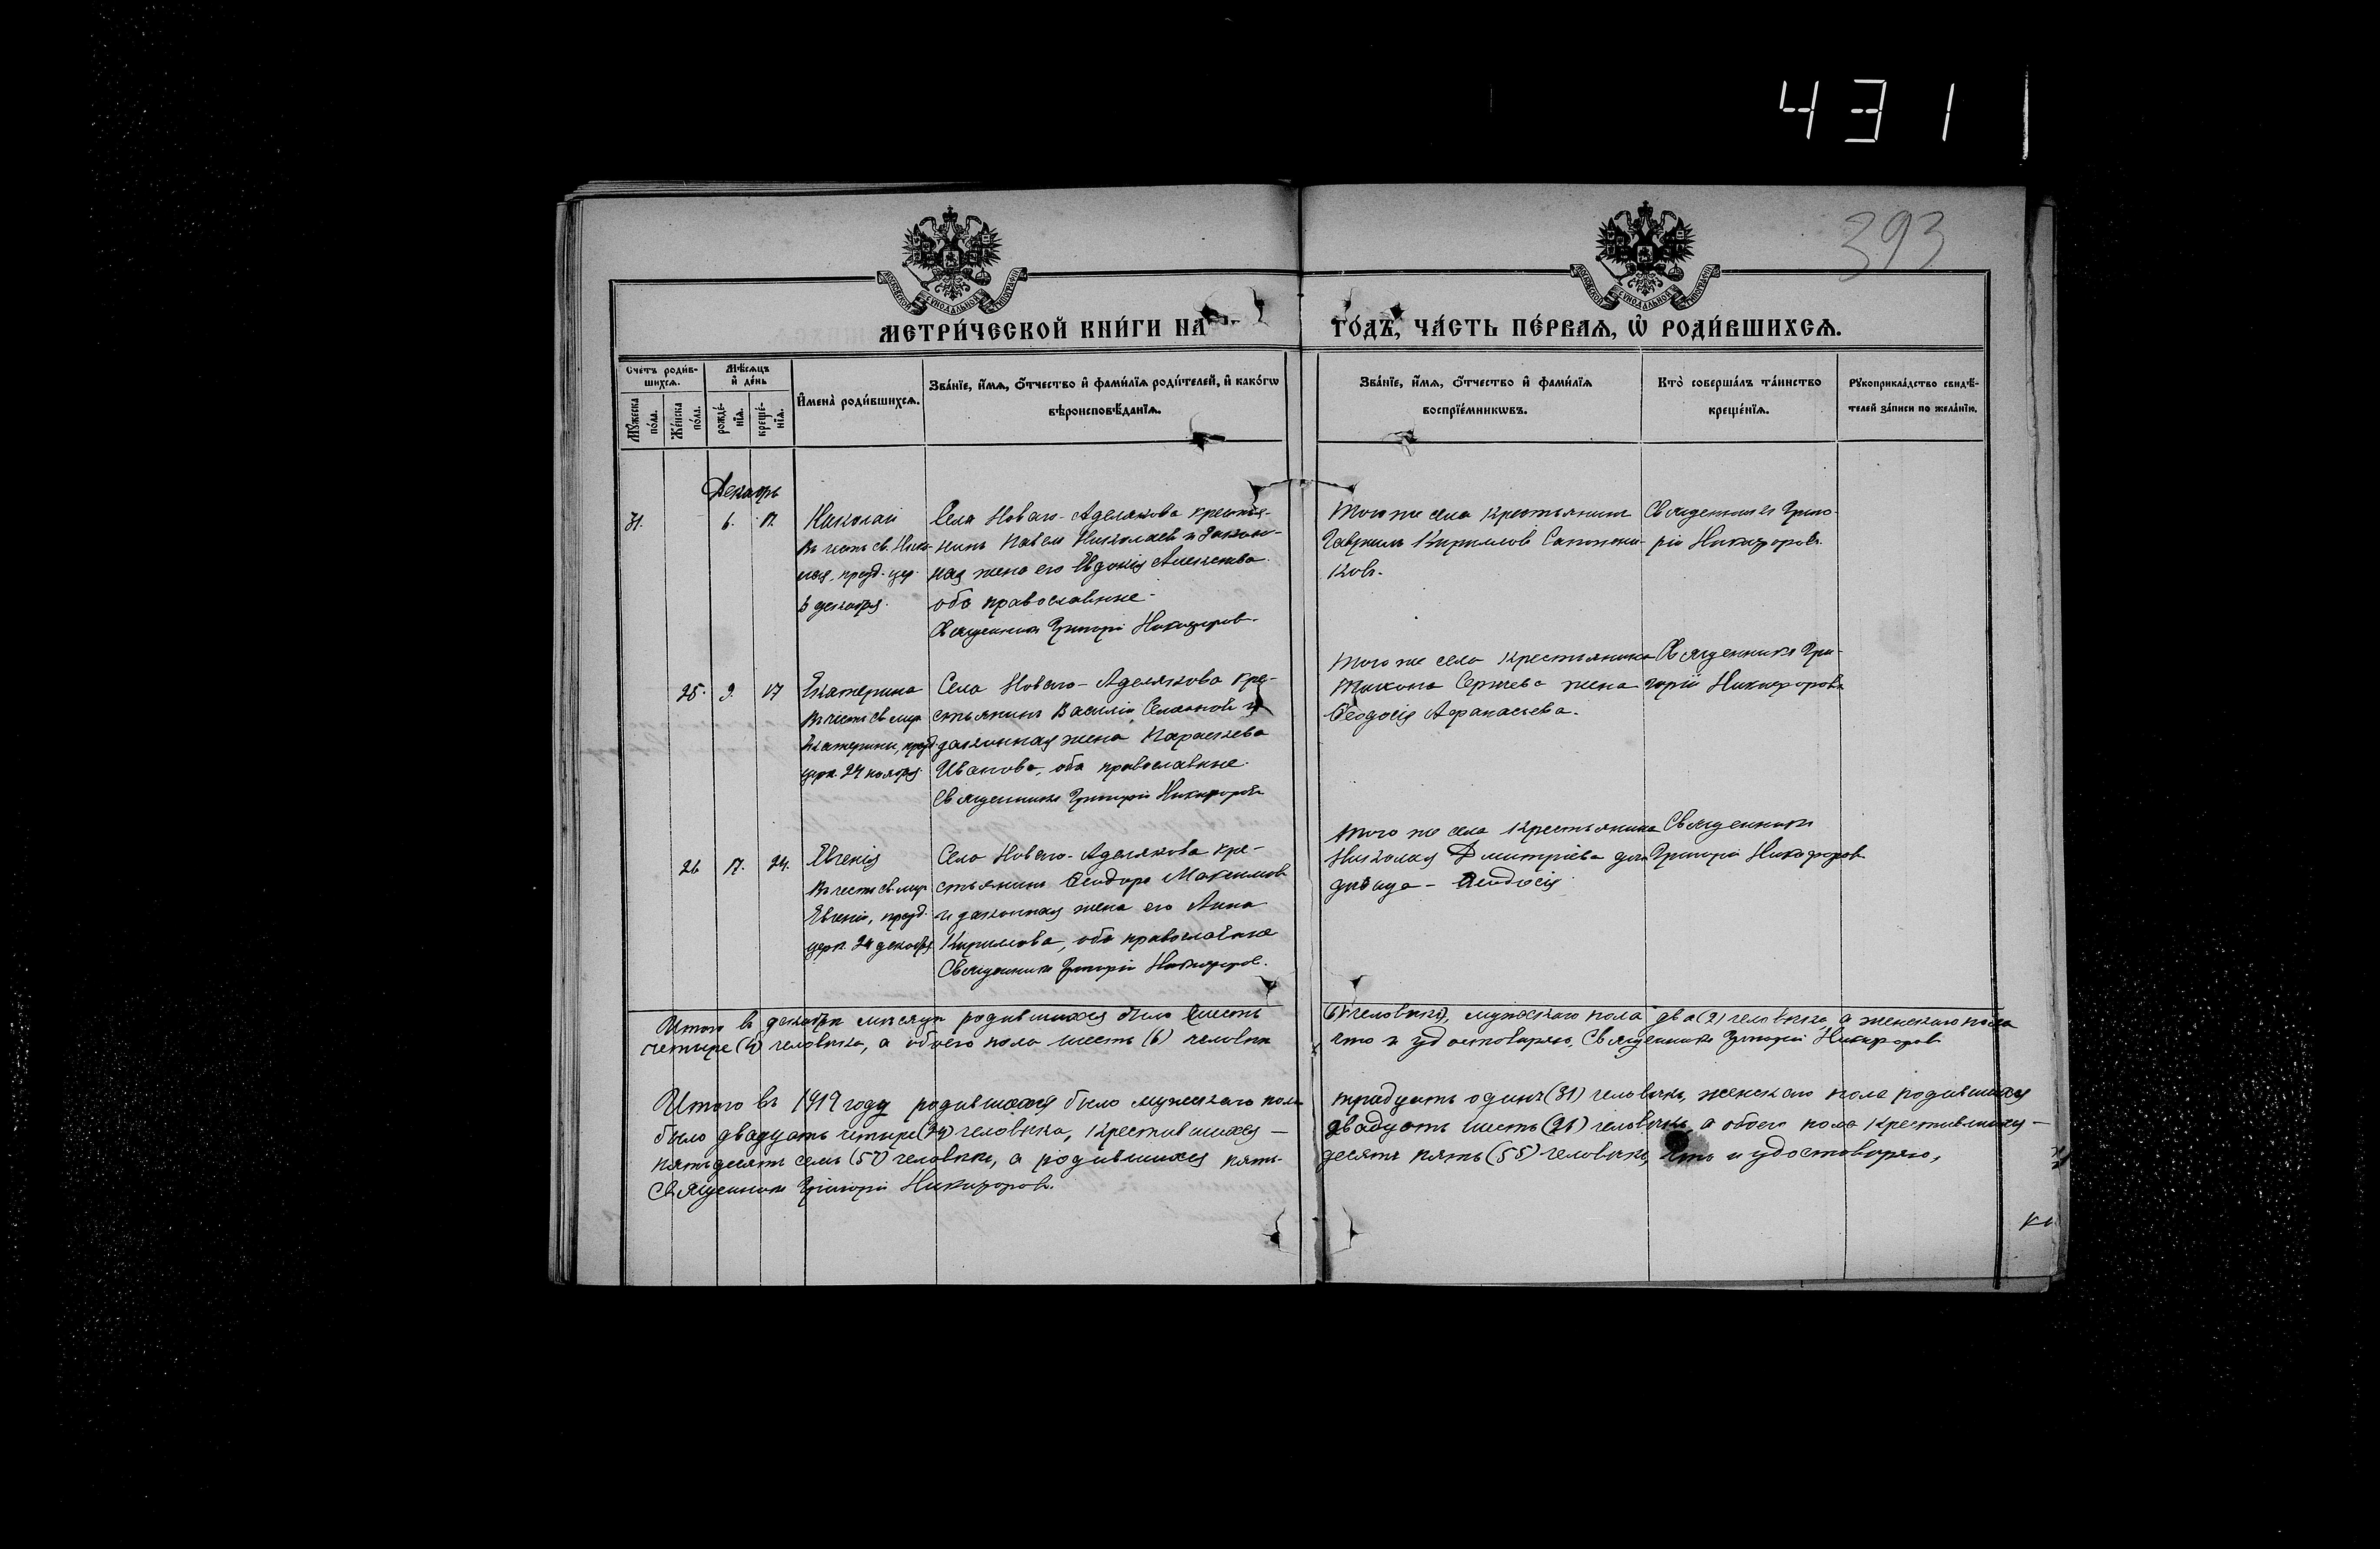 4 3 1
393
МОСКОВСКОЙ СУНОДАЛЬНОЙ ТИПОГРАФІИ
МОСКОВСКОЙ СУНОДАЛЬНОЙ ТИПОГРАФІИ
МЕТРИ́ЧЕСКОЙ КНИ́ГИ НА
ГО́ДЪ, ЧА́СТЬ ПЕ́РВАѦ, Ѡ҆ РОДИ́ВШИХСѦ.
Сче́тъ роди́в-
шихсѧ.
Мѣ́сѧцъ
и҆ де́нь
Мꙋ́жеска
по́ла.
Же́нска
по́ла.
рожде́-
нїѧ.
креще́-
нїѧ.
И҆мена̀ роди́вшихсѧ.
Зва́нїе, и҆́мѧ, ѻ҆́тчество и҆ фами́лїѧ роди́телей, и҆ како́гѡ
вѣроисповѣ́данїѧ.
Зва́нїе, и҆́мѧ, ѻ҆́тчество и҆ фами́лїѧ
воспрїе́мникѡвъ.
Кто̀ соверша́лъ та́инство
креще́нїѧ.
Рꙋкоприкла́дство свидѣ́-
телей за́писи по жела́нїю.
Декабрь
31. 6. 17.
Николай
въ честь св. Нико-
лая, празд. цер.
6 декабря.
Села Новаго-Аделякова крестья-
нинъ Павелъ Николаевъ и закон-
ная жена его Евдокія Алексѣева
оба православные.
Священникъ Григорій Никифоровъ.
Того же села крестьянинъ
Гавріилъ Кирилловъ Сапожни-
ковъ.
Священникъ Григо-
рій Никифоровъ.
25. 9. 17
Екатерина
въ честь св. муч.
Екатерины, празд.
церк. 24 ноября.
Села Новаго-Аделякова кре-
стьянинъ Василій и
законная жена Параскева
Иванова, оба православные.
Священникъ Григорій Никифоровъ
Того же села крестьянина
Тихона Сергѣева жена
Ѳеодосія Афанасьева.
Священникъ Гри-
горій Никифоровъ
26 17. 24.
Евгенія
въ честь св. муч.
Евгеніи, празд.
церк. 24 декабря
Села Новаго-Аделякова кре-
стьянинъ Ѳеодоръ Максимовъ
и законная жена его Анна
Кириллова, оба православные
Священникъ Григорій Никифоровъ.
Того же села крестьянина
Николая Дмитріева дочь
дѣвица - Ѳеодосія
Священникъ
Григорій Никифоровъ
Итого въ декабрѣ мѣсяцѣ родившихся было шесть
(6) человѣкъ, мужскаго пола два (2) человѣка, а женскаго пола
четыре (4) человѣка, а обоего пола шесть (6) человѣкъ
что и удостовѣряю. Священникъ Григорій Никифоровъ
Итого въ 1919 году родившихся было мужскаго пола
тридцать одинъ (31) человѣкъ, женскаго пола родившихся
было двадцать четыре (24) человѣка, крестившихся -
двадцать шесть (26) человѣкъ, а обоего пола крестившихся -
пятьдесятъ семь (57) человѣкъ, а родившихся пять-
десятъ пять (55) человѣкъ, что и удостовѣряю,
Священникъ Григорій Никифоровъ.